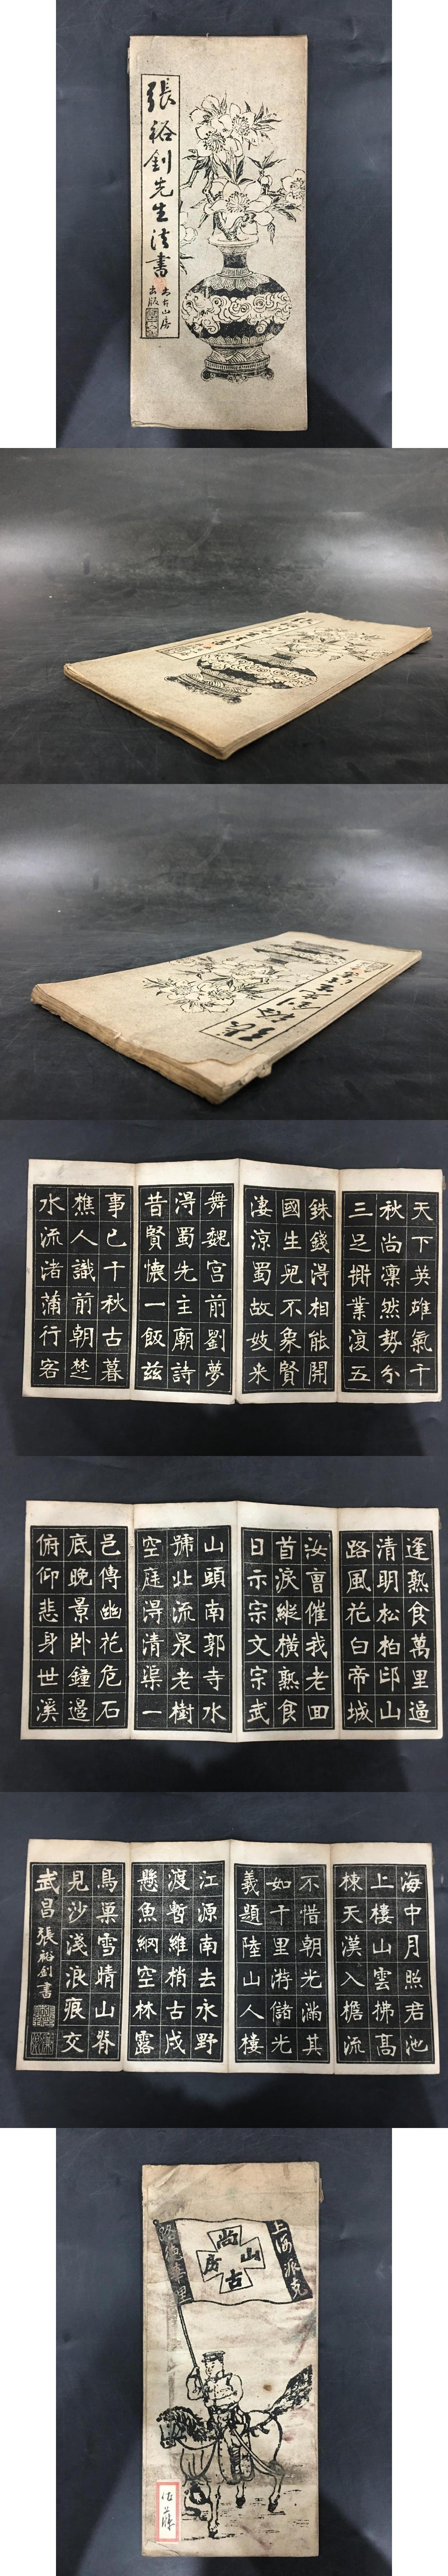 張裕釗先生法書
尚古山房
出版
天下英雄氣千
秋尚凛然勢分
三足鼎業復五
銖錢淂相能開
國生兒不象賢
淒涼蜀故妓来
舞魏宮前劉夢
淂蜀先主廟詩
昔賢懷一飯兹
事已千秋古暮
樵人識前朝楚
水流渚蒲行客
逢熟食萬里逼
清明松柏邙山
路風花白帝城
汝曾催我老回
首淚縱橫熟食
日示宗文宗武
山頭南郭寺水
號北流泉老樹
空庭淂清渠一
邑傳幽花危石
底晚景卧鐘邊
俯仰悲身世溪
海中月照君池
上樓山雲拂高
棟天漢入檐流
不惜朝光滿其
如千里游儲光
羲題陸山人樓
江源南去永野
渡暫維梢古戍
懸魚網空林露
鳥巢雪晴山脊
見沙淺浪痕交
武昌張裕釗書
上海派克
路德華里
尚古山房